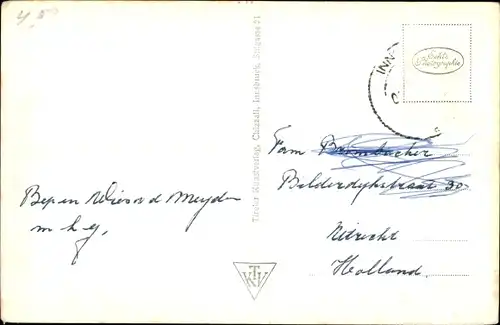 4.5
Bep en Wies v d Meyden
m h g,
Tiroler Kunstverlag, Chizzali, Innsbruck, Sillgasse 21
TKV
INN
Echte
Photographie
Fam Brembacher
Bilderdijkstraat 30
Utrecht
Holland.